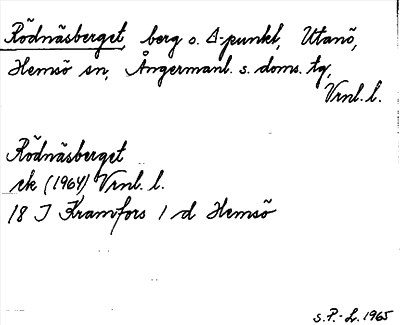 Rödnäsberget, berg o. Δ-punkt, Utanö,
Hemsö sn, Ångermanl. s. doms. tg,
Vrnl. l.
Rödnäsberget
ek (1964) Vrnl. l.
18 I Kramfors 1 d Hemsö
S.P.-L. 1965